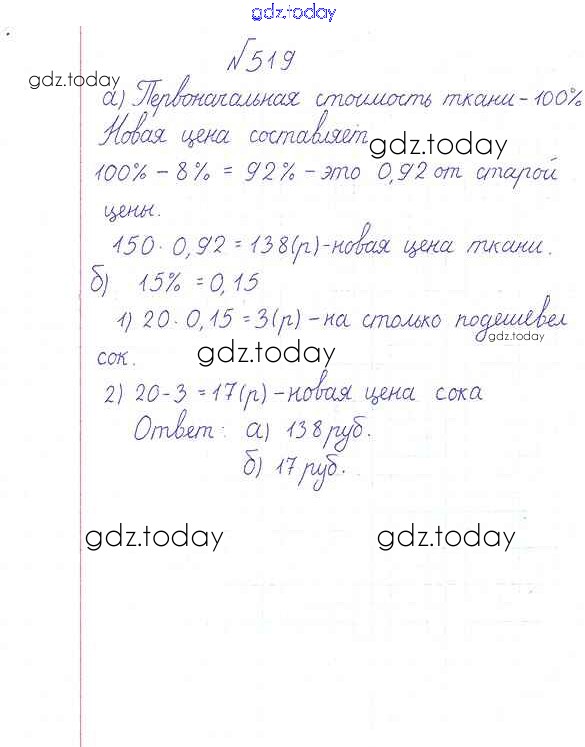 gdz.today
№519
gdz.today
а) Первоначальная стоимость ткани - 100%
Новая цена составляет
gdz.today
100% - 8% = 92% - это 0,92 от старой
цены.
150 · 0,92 = 138(р) - новая цена ткани.
б) 15% = 0,15
1) 20 · 0,15 = 3(р) - на столько подешевел
gdz.today
сок.
gdz.today
2) 20 - 3 = 17(р) - новая цена сока
Ответ: а) 138 руб.
б) 17 руб.
gdz.today gdz.today